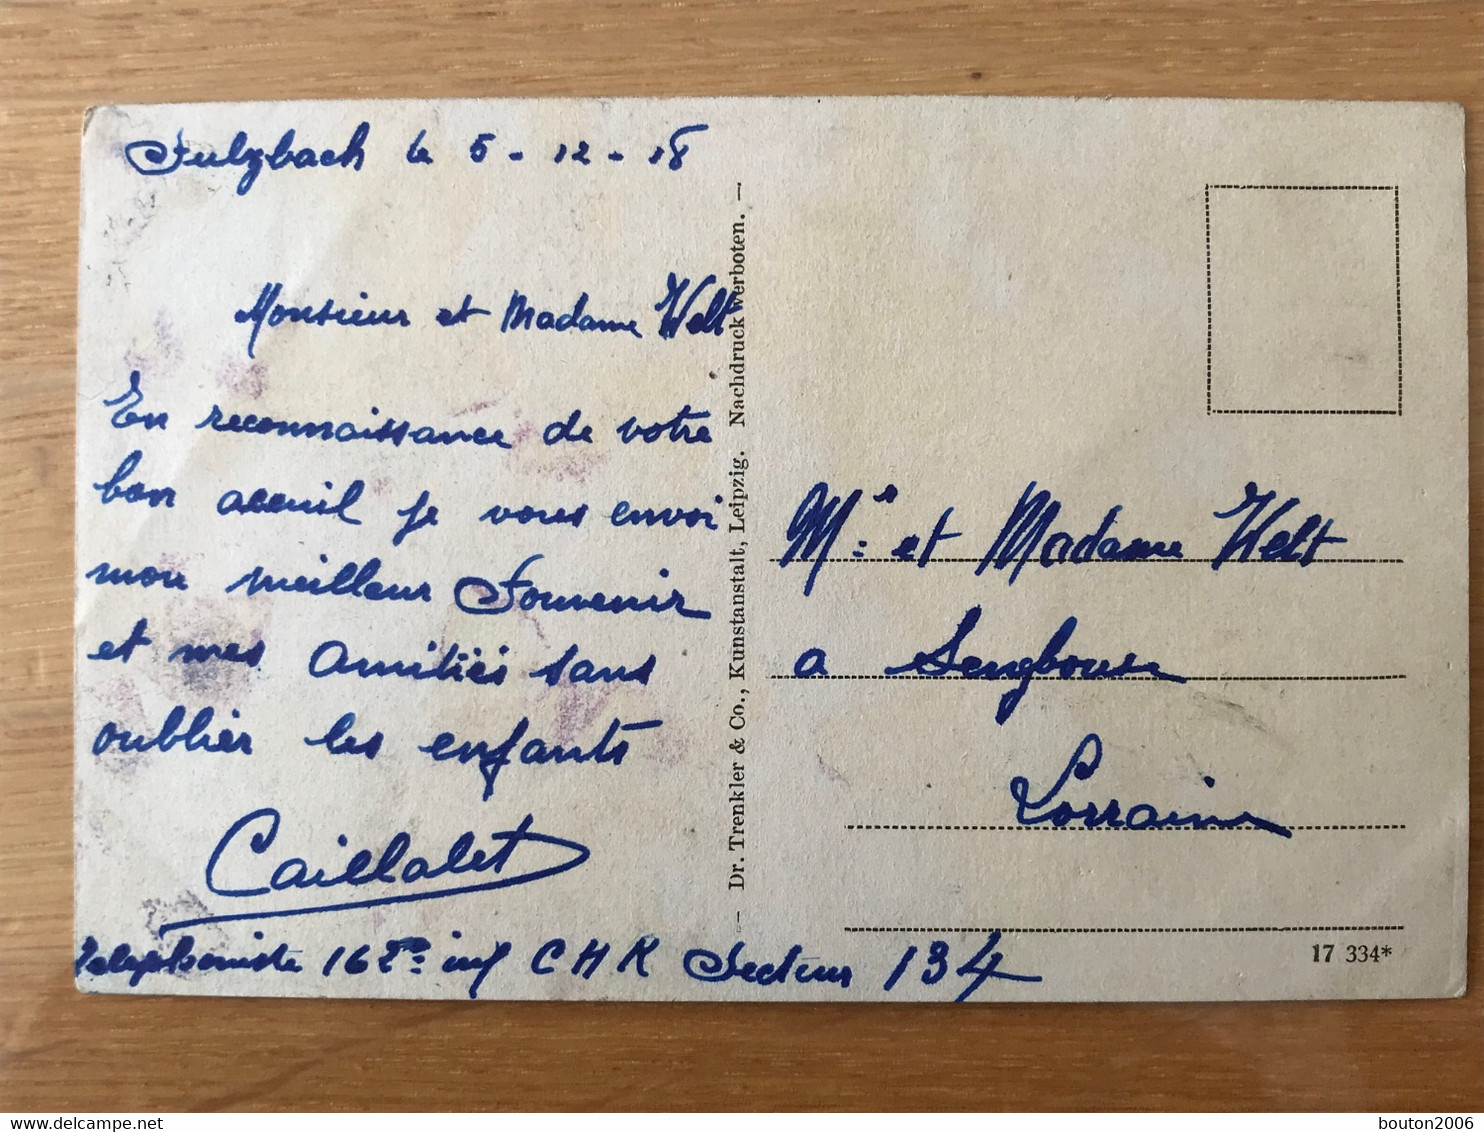 Sulzbach le 5 - 12 - 18
Monsieur et Madame Welt
En reconnaissance de votre
bon acceuil je vous envoi
mon meilleur Souvenir
et mes amitiés sans
oublier les enfants
Caillalet
Telephoniste 162e inf C H R Secteur 134
Dr. Trenkler & Co., Kunstanstalt, Leipzig. Nachdruck verboten.
Mr et Madame Welt
a Sengbouse
Lorraine
17 334*
bouton2006